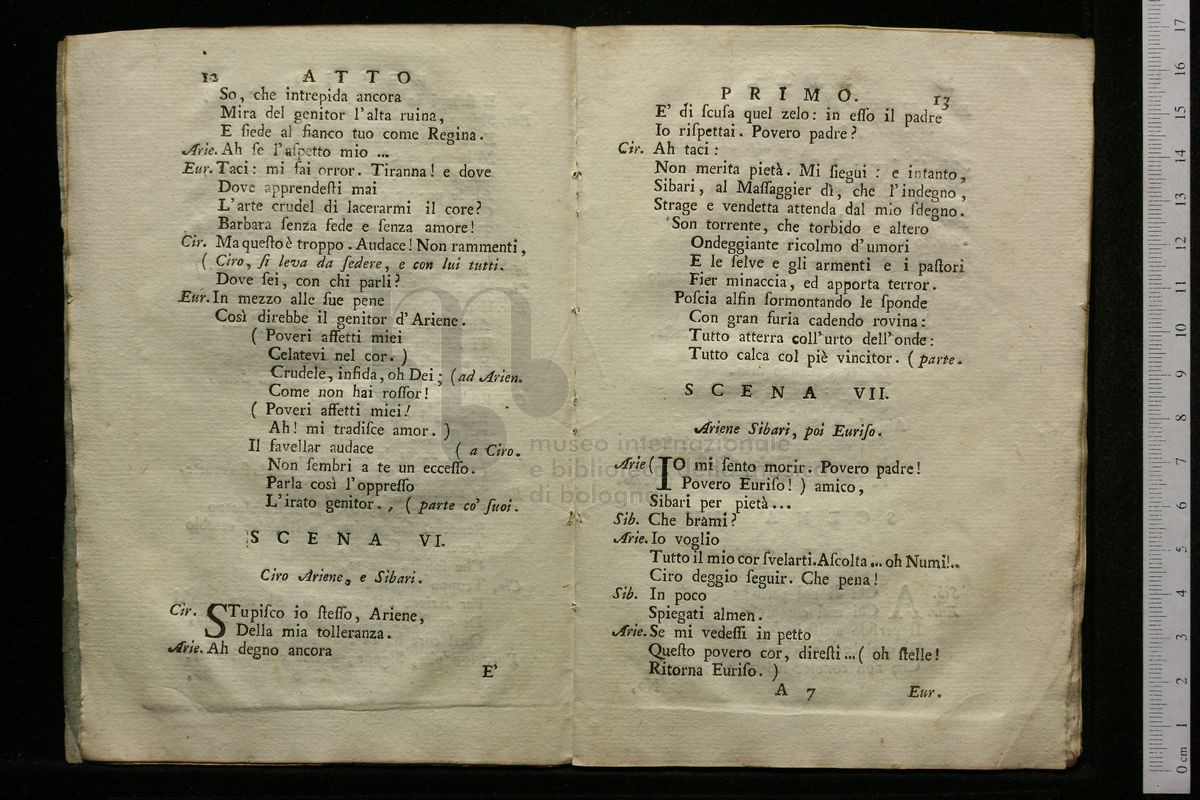 12 ATTO
So, che intrepida ancora
Mira del genitor l'alta ruina,
E ſiede al fianco tuo come Regina.
Arie. Ah ſe l'aſpetto mio ...
Eur. Taci: mi fai orror. Tiranna! e dove
Dove apprendeſti mai
L'arte crudel di lacerarmi il core?
Barbara ſenza fede e ſenza amore!
Cir. Ma queſto è troppo. Audace! Non rammenti,
( Ciro, ſi leva da ſedere, e con lui tutti.
Dove ſei, con chi parli?
Eur. In mezzo alle ſue pene
Così direbbe il genitor d'Ariene.
( Poveri affetti miei
Celatevi nel cor. )
Crudele, infida, oh Dei; (ad Arien.
Come non hai roſſor!
( Poveri affetti miei!
Ah! mi tradiſce amor. )
Il favellar audace ( a Ciro.
Non ſembri a te un ecceſſo.
Parla così l'oppreſſo
L'irato genitor. , ( parte co' ſuoi.
SCENA VI.
Ciro Ariene, e Sibari.
Cir. STupiſco io ſteſſo, Ariene,
Della mia tolleranza.
Arie. Ah degno ancora
E'
PRIMO. 13
E' di ſcuſa quel zelo: in eſſo il padre
Io riſpettai. Povero padre?
Cir. Ah taci:
Non merita pietà. Mi ſiegui : e intanto,
Sibari, al Maſſaggier dì, che l'indegno,
Strage e vendetta attenda dal mio ſdegno.
Son torrente, che torbido e altero
Ondeggiante ricolmo d'umori
E le ſelve e gli armenti e i paſtori
Fier minaccia, ed apporta terror.
Poſcia alfin ſormontando le ſponde
Con gran furia cadendo rovina:
Tutto atterra coll'urto dell'onde:
Tutto calca col piè vincitor. ( parte.
SCENA VII.
Ariene Sibari, poi Euriſo.
Arie ( IO mi ſento morir. Povero padre!
Povero Euriſo! ) amico,
Sibari per pietà...
Sib. Che brami?
Arie. Io voglio
Tutto il mio cor ſvelarti. Aſcolta ... oh Numi!..
Ciro deggio ſeguir. Che pena!
Sib. In poco
Spiegati almen.
Arie. Se mi vedeſſi in petto
Queſto povero cor, direſti ... ( oh ſtelle!
Ritorna Euriſo. )
A 7 Eur.
museo internazionale
e biblioteca della musica
di bologna
0 cm 1 2 3 4 5 6 7 8 9 10 11 12 13 14 15 16 17